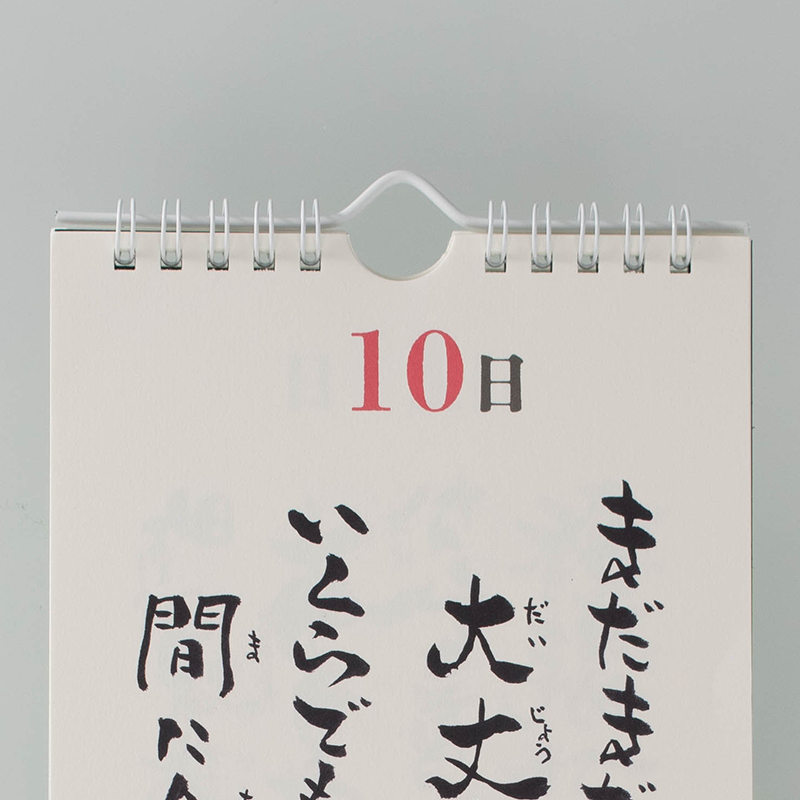 10日
まだまだ
大丈
だいじょう
いくらでも
間に
ま